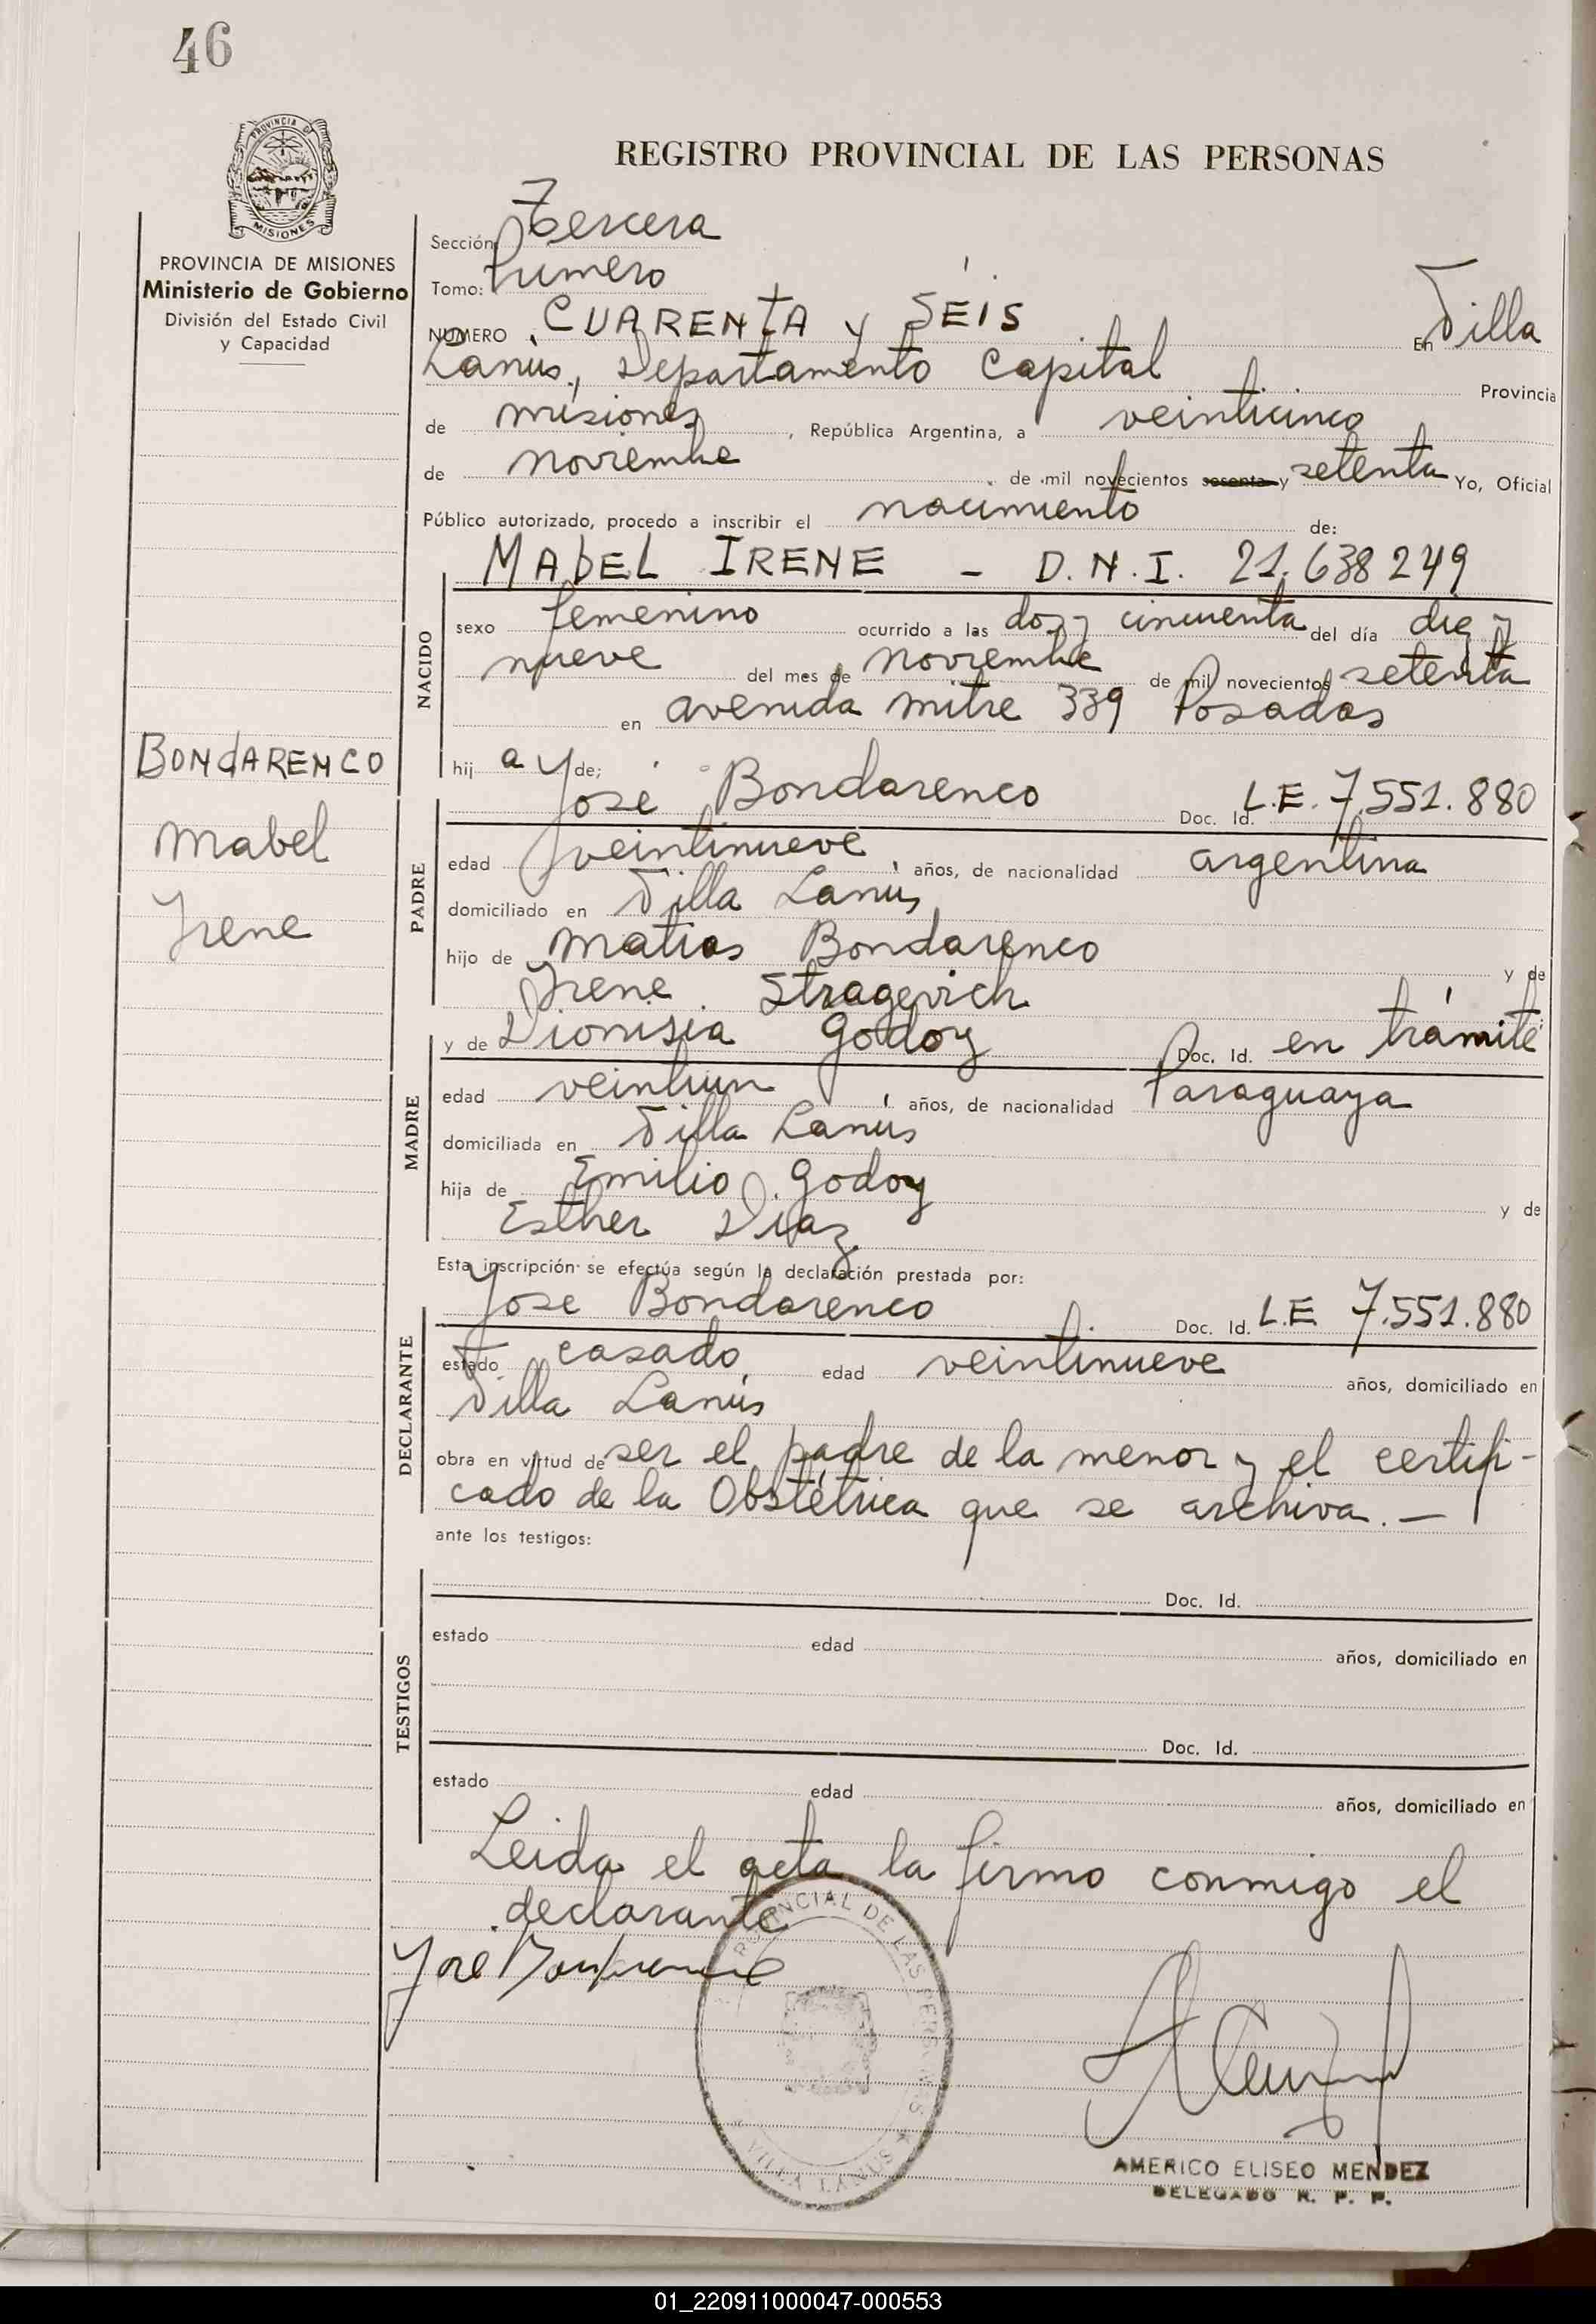 46
REGISTRO PROVINCIAL DE LAS PERSONAS
PROVINCIA DE MISIONES
Ministerio de Gobierno
División del Estado Civil
y Capacidad
BONdAREMCO
Mabel
Irene
Sección Tercera
Tomo: Primero
NUMERO CUARENTA y SEIS En Villa
Lanús, Departamento Capital Provincia
de misiones, República Argentina, a veinticinco
de noviembre de mil novecientos sesenta y setenta Yo, Oficial
Público autorizado, procedo a inscribir el nacimiento de:
MAbEL IRENE - D.N.I. 21.638249
NACIDO
sexo femenino ocurrido a las dos y cincuenta del día diez y
nueve del mes de noviembre de mil novecientos setenta
en avenida mitre 339 Posadas
hij a de;
PADRE
José Bondarenco Doc. Id. L.E. 7.551.880
edad veintinueve años, de nacionalidad argentina
domiciliado en Villa Lanús
hijo de Matias Bondarenco y de
Irene Stragevich
MADRE
y de Dionisia Godoy Doc. Id. en trámite
edad veintiun años, de nacionalidad Paraguaya
domiciliada en Villa Lanús
hija de Emilio Godoy y de
Esther Diaz
Esta inscripción se efectúa según la declaración prestada por:
DECLARANTE
Jose Bondarenco Doc. Id. L.E 7.551.880
estado casado edad veintinueve años, domiciliado en
Villa Lanús
obra en virtud de ser el padre de la menor y el certifi-
cado de la Obstétrica que se archiva. —
ante los testigos:
TESTIGOS
Doc. Id.
estado edad años, domiciliado en
Doc. Id.
estado edad años, domiciliado en
Leida el acta la firmo conmigo el
declarante
PROVINCIAL DE LAS PERSONAS
VILLA LANUS
AMERICO ELISEO MENDEZ
DELEGADO R. P. P.
01_220911000047-000553